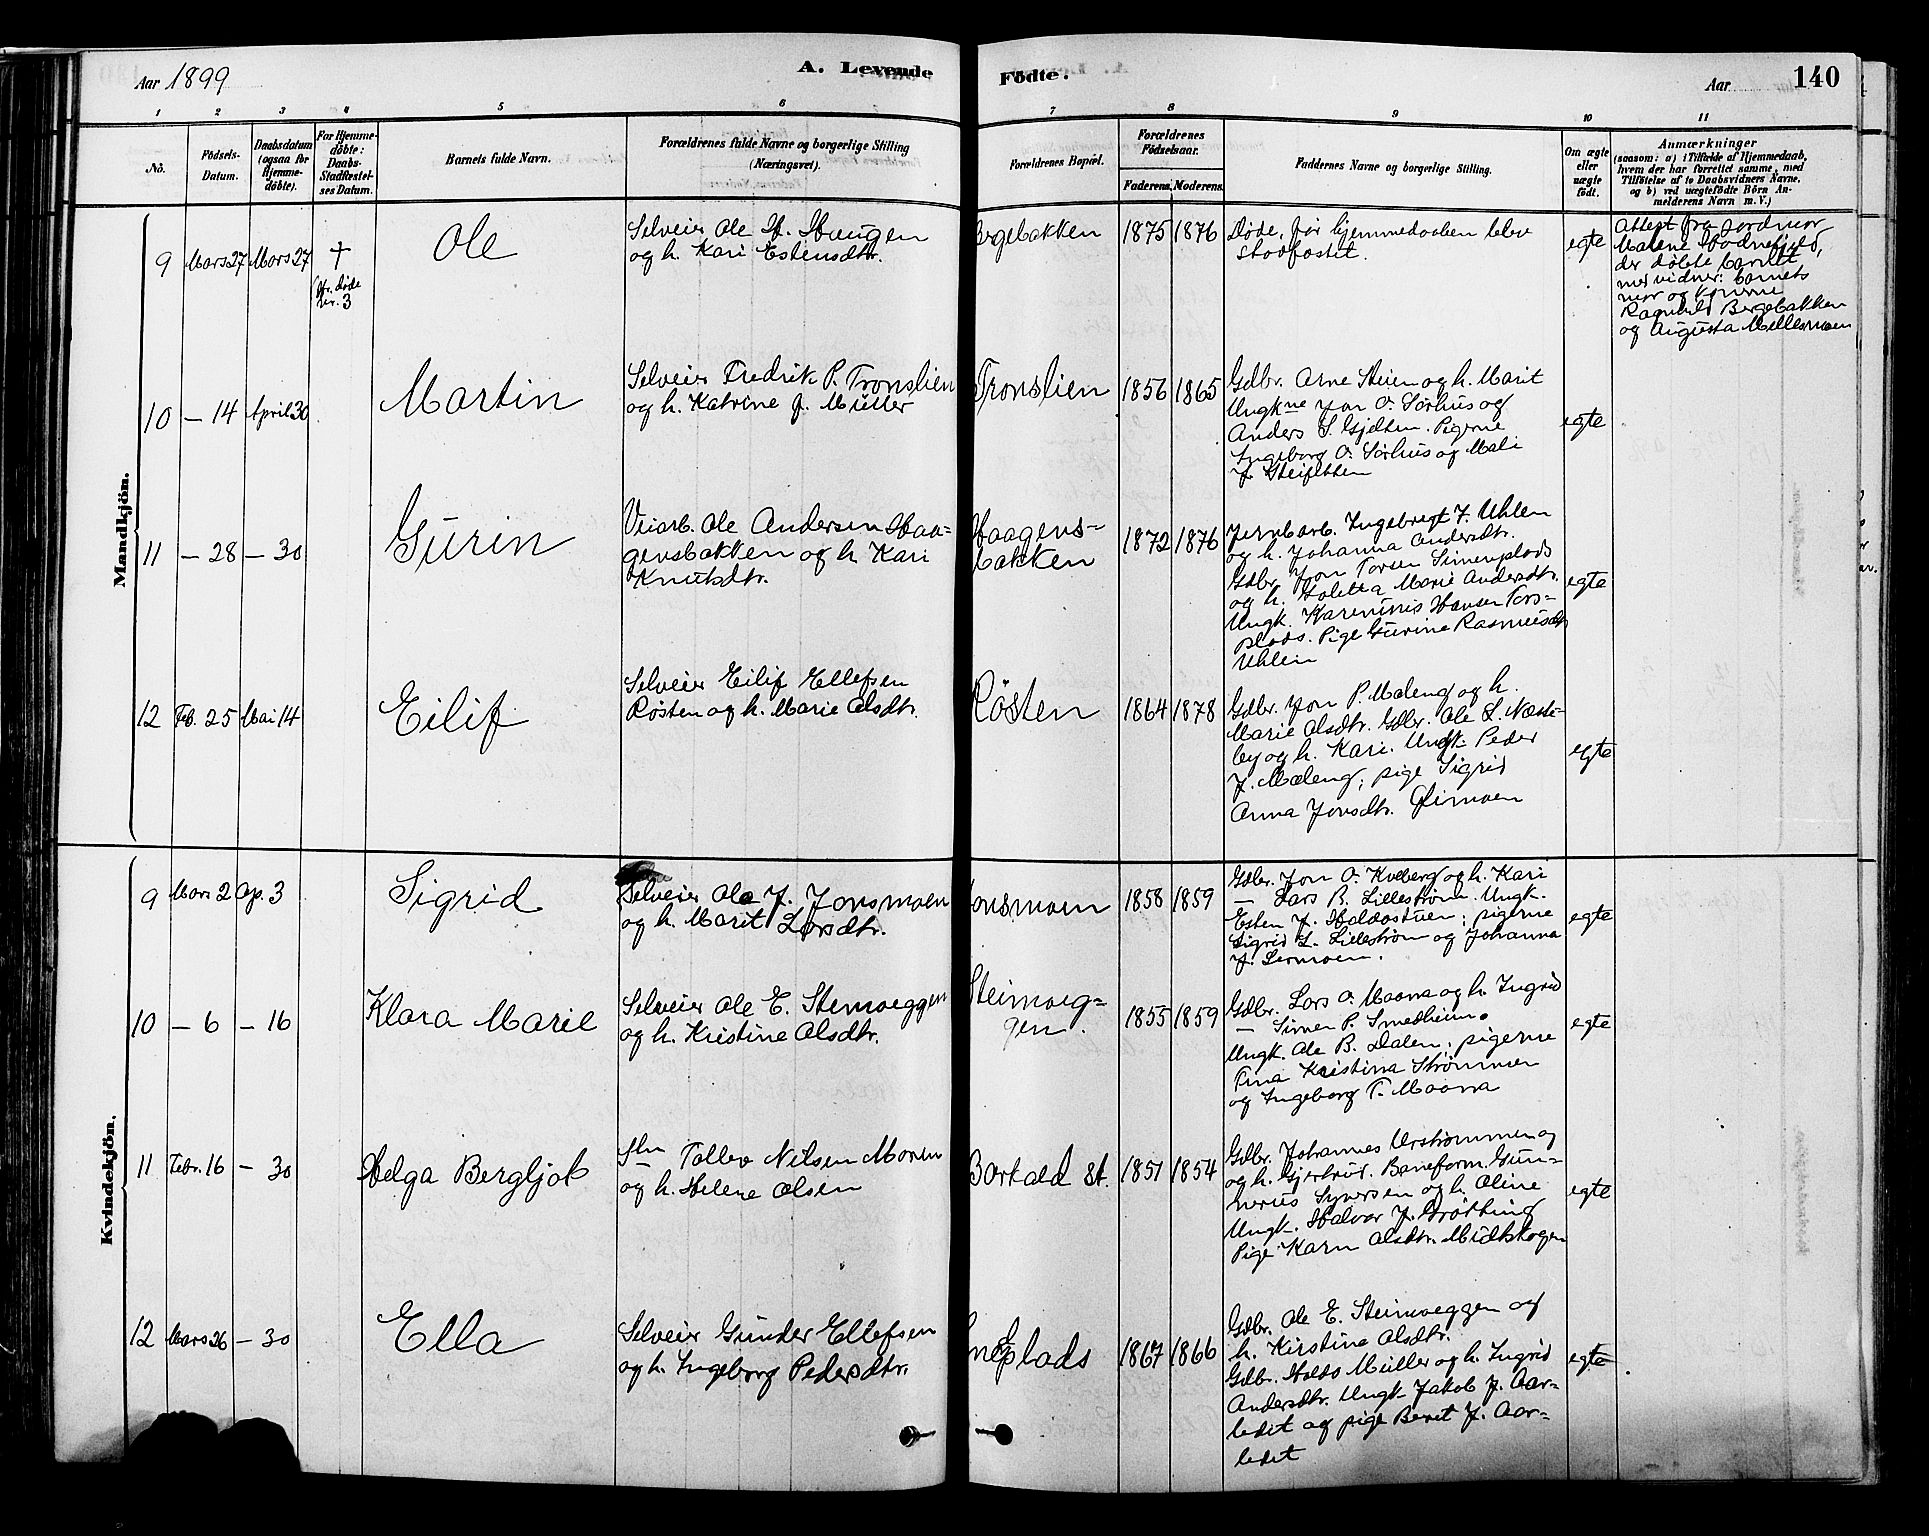 Aar 1899
A. Levende
Födte.
Aar
140
1 2 3 4 5 6 7 8 9 10 11
No.
Födsels-
Datum.
Daabsdatum
(ogsaa for
Hjemme-
döbte).
For Hjemme-
döbte:
Daabs-
Stadfæstel-
ses Datum.
Barnets fulde Navn.
Forældrenes fulde Navne og borgerlige Stilling
(Næringsvei).
Forældrenes Bopæl.
Forældrenes
Födselsaar.
Faderens. Moderens.
Faddernes Navne og borgerlige Stilling.
Om ægte
eller
uægte
födt.
Anmærkninger
(saasom: a) i Tilfælde af Hjemmedaab,
hvem der har forrettet samme, med
Tilföielse af to Daabsvidners Navne,
og b) ved uægtefödte Börn An-
melderens Navn m. V.)
Mandkjön.
9
Mars 27
Mars 27
†
døde
nr. 3
Ole
Selveier Ole H. Haugen
og h. Kari Estensdtr.
Bergebakken
1875
1876
Døde, før hjemmedaaben blev
stadfæstet.
egte
Attest fra jordmor
Malene Hodnefjeld,
der døbte barnet
med vidner: barnets
mor og konerne
Ragnhild Bergebakken
og Augusta Mellesmoen
10
– 14
April 30
Martin
Selveier Fredrik P. Tronslien
og h. Katrine J. Müller
Tronslien
1856
1865
Gdbr. Arne Steien og h. Marit
Ungkne Jon O. Sørhus og
Anders S. Gjelten. Pigerne
Ingeborg O. Sørhus og Mali
J.
egte
11
– 28
– 30
Gurin
Veiarb. Ole Andersen Haa-
gensbakken og h. Kari
Knutsdtr.
Haagens-
bakken
1872
1876
Jernb.arb. Ingebregt J. Uhlen
og h. Johanna Andersdtr.
Gdbr. Jon Torsen Simenplads
og h. Marie Andersdtr.
Ungk. Kareninis Hansen Tors-
plads. Pige Gurine Rasmusdtr
Uhlen
egte
12
Feb. 25
Mai 14
Eilif
Selveier Eilif Ellefsen
Røsten og h. Marie Olsdtr.
Røsten
1864
1878
Gdbr. Jon P. Mæleng og h.
Marie Olsdtr. Gdbr. Ole L. Neste-
by og h. Kari. Ungk. Peder
J. Mæleng; pige Sigrid
Anna Jonsdtr. Glimoen
egte
Kvindekjön.
9
Mars 2
Ap. 3
Sigrid
Selveier Ole J. Jonsmoen
og h. Marit Larsdtr.
Jonsmoen
1858
1859
Gdbr. Jon O. Kveberg og h. Kari
– Lars B. Lillestrøm. Ungk.
Esten J. Haldostuen; pigerne
Sigrid L. Lillestrøm og Johanna
J. Lermoen.
egte
10
– 6
– 16
Klara Marie
Selveier Ole E. Steimoeggen
og h. Kristine Olsdtr.
Steimoeg-
gen.
1855
1859
Gdbr. Lars O. Moana og h. Ingrid
– Simen P. Smedheim.
Ungk. Ole B. Dalen; pigerne
Tina Kristina Strømmen
og Ingeborg T. Moana
egte
11
Febr. 16
– 30
Helga Bergljot
Tollev Nilsen Moren
og h. Helene Olsen
Barkald st.
1851
1854
Gdbr. Johannes Urstrømmen og
og h. Gjertrud. Baneform. Gun-
nerius Syversen og h. Oline
Ungk. Halvor J. Trøtting
Pige Karen Olsdtr. Midtskogen
egte
12
Mars 26
– 30
Ella
Selveier Gunder Ellefsen
og h. Ingeborg Pedersdtr.
1867
1866
Gdbr. Ole E. Steimoeggen og
h. Kirstine Olsdtr.
Gdbr. Haldo Müller og h. Ingrid
Andersdtr. Ungk. Jakob J. Aar-
ledet og pige Beret J. Aar-
ledet
egte